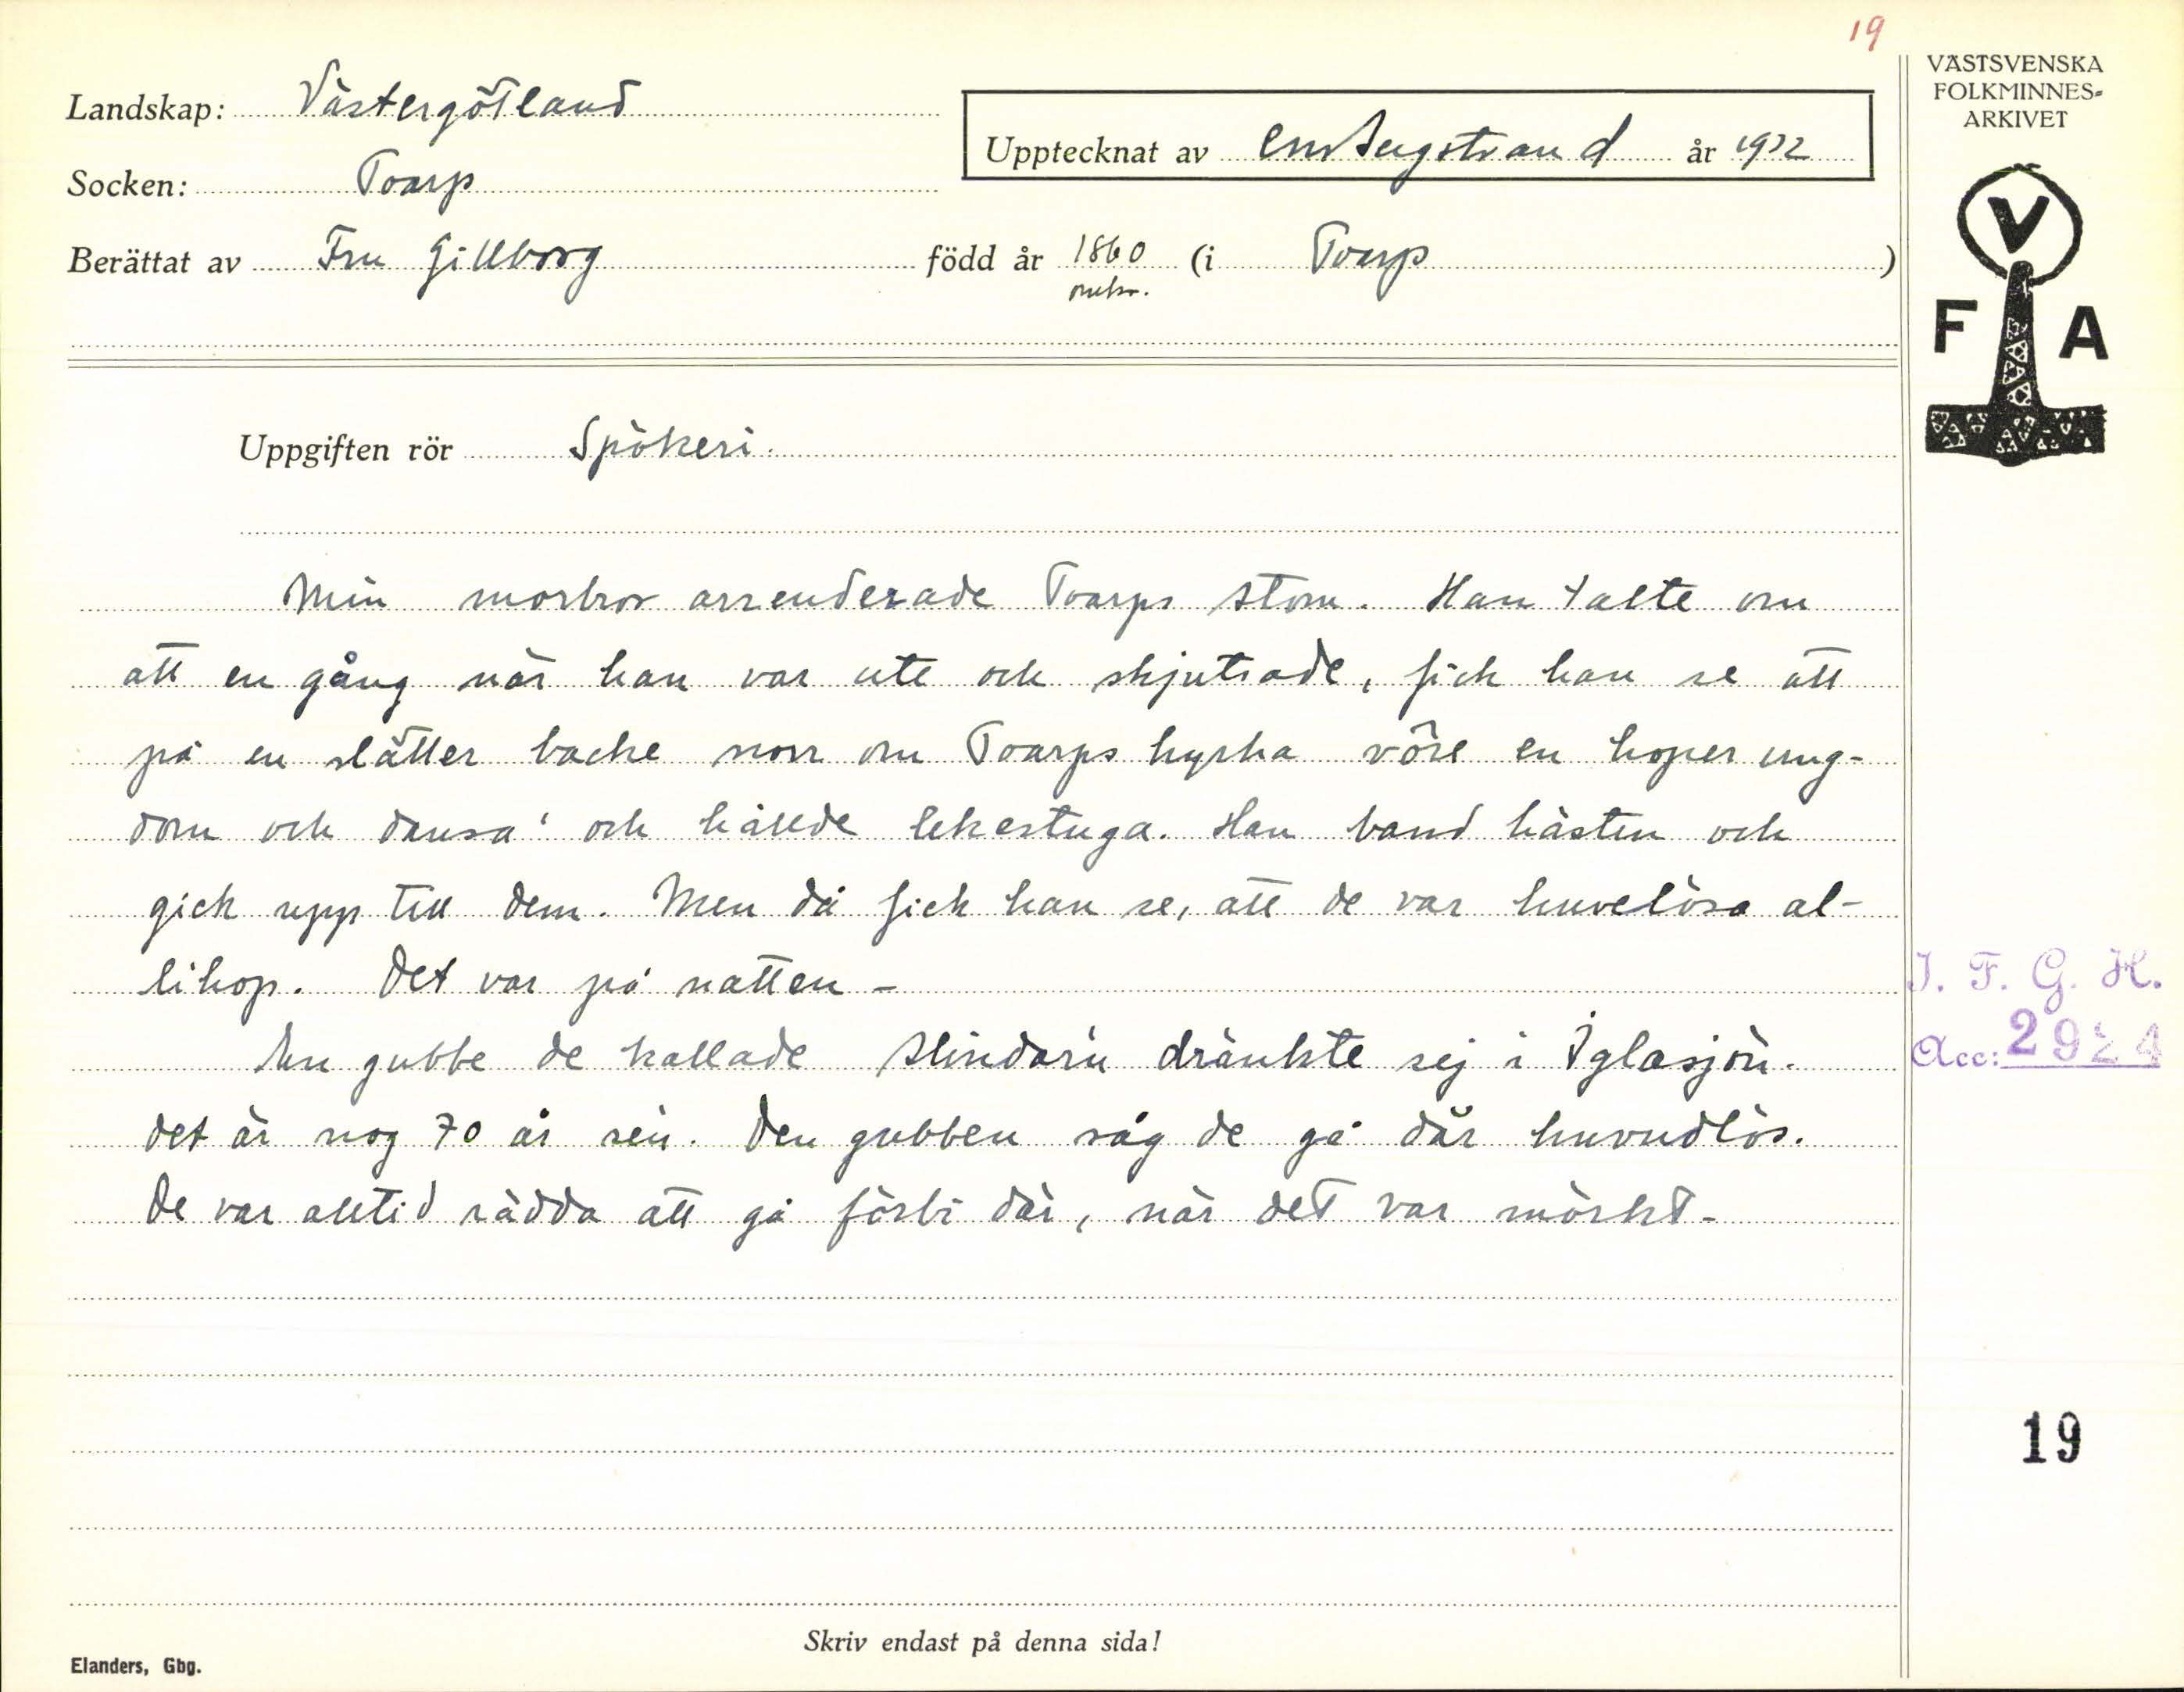 19
VÄSTSVENSKA
FOLKMINNES-
ARKIVET
Landskap: Västergötland
Upptecknat av Engstrand år 1932
Socken: Toarp
Berättat av Fru Gillborg född år 1860 (i Toarp)
omkr.
V
F A
Uppgiften rör Spökeri.
Min morbror arrenderade Toarps stom. Han talte om
att en gång när han var ute och skjutsade, fick han se att
på en slätter backe norr om Toarps kyrka vôre en hoper ung-
dom och dansa' och hållde lekestuga. Han band hästen och
gick upp till dem. Men då fick han se, att de var huvelösa al-
lihop. Det var på natten -
En gubbe de kallade dränkte sej i Iglasjön.
det är nog 70 år sen. Den gubben såg de gå där huvudlös.
De var alltid rädda att gå förbi där, när det var mörkt -
I. F. G. H.
Acc: 2924
19
Skriv endast på denna sida!
Elanders, Gbg.